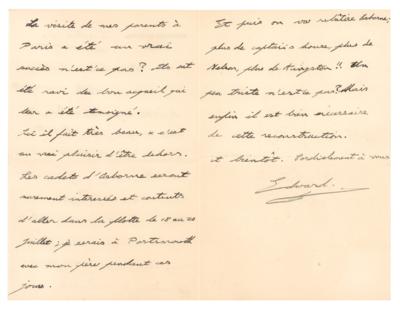 La visite de mes parents à
Paris a été un vrai
succès n'est ce pas? Ils ont
été ravi du bon accueil qui
leur a été témoigné.
Ici il fait très beau, & c'est
un vrai plaisir d'être dehors.
Les cadets d'Osborne seront
surement interessés et contents
d'aller dans la flotte de 18 au 22
Juillet; je serais à Portsmouth
avec mon père pendant ces
jours.
Et puis on va refaire Osborne;
plus de captain's house, plus de
Nelson, plus de Kingston!! Un
peu triste n'est ce pas? Mais
enfin il est bien nécessaire
de cette reconstruction.
à bientôt. Cordialement à vous
Edward.